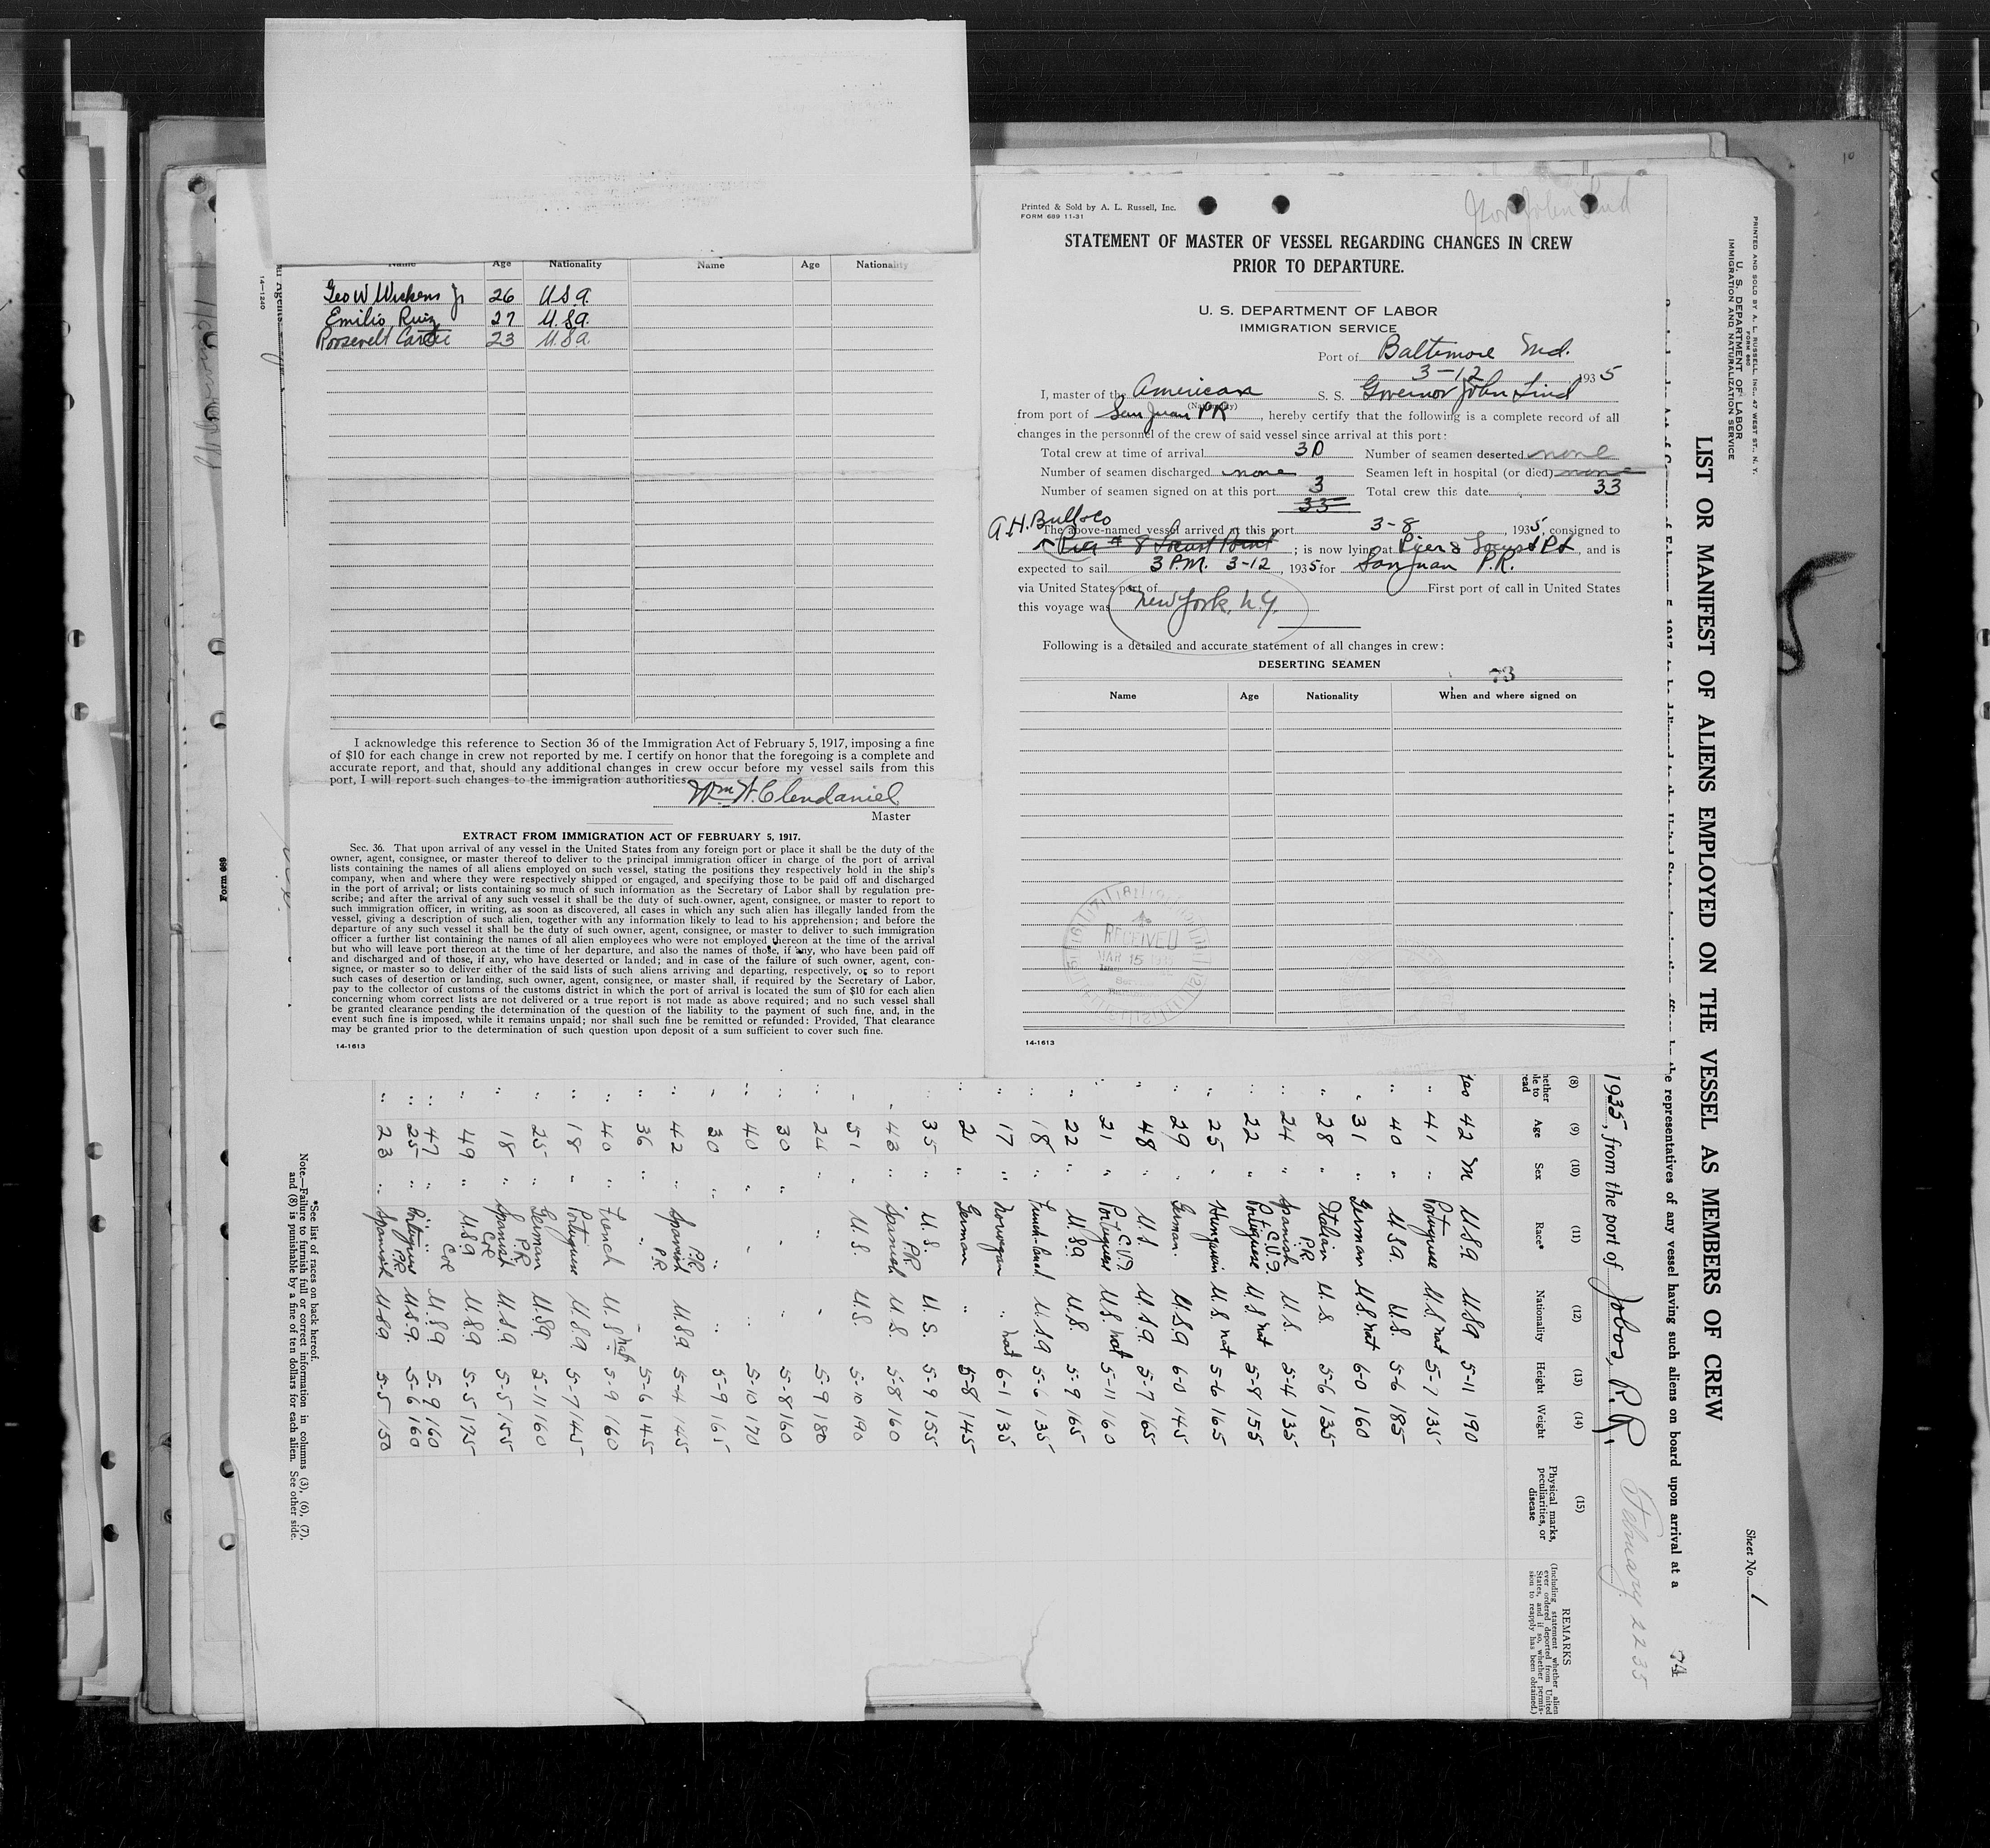 Name Age Nationality Name Age Nationality
Geo W Wickens Jr 26 U.S.A.
Emilio Ruiz 27 U.S.A.
Roosevelt Carter 23 U.S.A.
I acknowledge this reference to Section 36 of the Immigration Act of February 5, 1917, imposing a fine
of $10 for each change in crew not reported by me. I certify on honor that the foregoing is a complete and
accurate report, and that, should any additional changes in crew occur before my vessel sails from this
port, I will report such changes to the immigration authorities.
Wm W. Clendaniel
Master
EXTRACT FROM IMMIGRATION ACT OF FEBRUARY 5, 1917.
Sec. 36. That upon arrival of any vessel in the United States from any foreign port or place it shall be the duty of the
owner, agent, consignee, or master thereof to deliver to the principal immigration officer in charge of the port of arrival
lists containing the names of all aliens employed on such vessel, stating the positions they respectively hold in the ship's
company, when and where they were respectively shipped or engaged, and specifying those to be paid off and discharged
in the port of arrival; or lists containing so much of such information as the Secretary of Labor shall by regulation pre-
scribe; and after the arrival of any such vessel it shall be the duty of such owner, agent, consignee, or master to report to
such immigration officer, in writing, as soon as discovered, all cases in which any such alien has illegally landed from the
vessel, giving a description of such alien, together with any information likely to lead to his apprehension; and before the
departure of any such vessel it shall be the duty of such owner, agent, consignee, or master to deliver to such immigration
officer a further list containing the names of all alien employees who were not employed thereon at the time of the arrival
but who will leave port thereon at the time of her departure, and also the names of those, if any, who have been paid off
and discharged and of those, if any, who have deserted or landed; and in case of the failure of such owner, agent, con-
signee, or master so to deliver either of the said lists of such aliens arriving and departing, respectively, or so to report
such cases of desertion or landing, such owner, agent, consignee, or master shall, if required by the Secretary of Labor,
pay to the collector of customs of the customs district in which the port of arrival is located the sum of $10 for each alien
concerning whom correct lists are not delivered or a true report is not made as above required; and no such vessel shall
be granted clearance pending the determination of the question of the liability to the payment of such fine, and, in the
event such fine is imposed, while it remains unpaid; nor shall such fine be remitted or refunded: Provided, That clearance
may be granted prior to the determination of such question upon deposit of a sum sufficient to cover such fine.
14-1613
14-1240
Form 689
Printed & Sold by A. L. Russell, Inc.
FORM 689 11-31
Gov John Lind
STATEMENT OF MASTER OF VESSEL REGARDING CHANGES IN CREW
PRIOR TO DEPARTURE.
U. S. DEPARTMENT OF LABOR
IMMIGRATION SERVICE
Port of Baltimore Md.
3-12 1935
I, master of the American S. S. Governor John Lind
(Nationality)
from port of San Juan PR, hereby certify that the following is a complete record of all
changes in the personnel of the crew of said vessel since arrival at this port:
Total crew at time of arrival 30 Number of seamen deserted none
Number of seamen discharged none Seamen left in hospital (or died) none
Number of seamen signed on at this port 3 Total crew this date 33
33
A.H. Bull & Co
The above-named vessel arrived at this port 3-8, 1935, consigned to
Pier # 8 Locust Point; is now lying at Pier 8 Locust Pt, and is
expected to sail 3 P.M. 3-12, 1935 for San Juan P.R.
via United States port of First port of call in United States
this voyage was New York, N.Y.
Following is a detailed and accurate statement of all changes in crew:
DESERTING SEAMEN
73
Name Age Nationality When and where signed on
RECEIVED
MAR 15 1935
14-1613
PRINTED AND SOLD BY A. L. RUSSELL, INC., 47 WEST ST., N. Y.
FORM 680
U. S. DEPARTMENT OF LABOR
IMMIGRATION AND NATURALIZATION SERVICE
Sheet No. 1
LIST OR MANIFEST OF ALIENS EMPLOYED ON THE VESSEL AS MEMBERS OF CREW
the representatives of any vessel having such aliens on board upon arrival at a
74
1935, from the port of Jobos, P.R. February 22 35
(8) (9) (10) (11) (12) (13) (14) (15)
Age Sex Race* Nationality Height Weight Physical marks, peculiarities, or disease
REMARKS
(Including statement whether alien ever ordered deported from United States, and if so, whether permission to reapply has been obtained.)
yes 42 M U.S.A U.S.A 5-11 190
" 41 " Portuguese U.S nat 5-7 135
" 40 " U.S.A. U.S. 5-6 185
" 31 " German U.S nat 6-0 160
" 28 " Italian U.S. 5-6 135
" 24 " Spanish P.R U.S. 5-4 135
" 22 " Portiguese C.V.I. U.S nat 5-8 155
" 25 " Hungarian U.S. nat 5-6 165
" 29 " German U.S.A 6-0 145
" 48 " U.S. U.S.A. 5-7 165
" 21 " Portuguese P.C.V.I U.S. nat 5-11 160
" 22 " U.S.A U.S. 5-9 165
" 18 " French-Canad U.S.A 5-6 135
" 17 " Norwegan " nat 6-1 135
" 21 " German " 5-8 145
" 35 " U.S. U.S. 5-9 155
" 43 " Spanish P.R U.S. 5-8 160
" 51 " U.S. U.S. 5-10 190
" 24 " " " 5-9 180
" 30 " " " 5-8 160
" 40 " " " 5-10 170
" 30 " " " 5-9 165
" 42 " Spanish P.R U.S.A 5-4 145
" 36 " " P.R. " 5-6 145
" 40 " French U.S nat 5-9 160
" 18 " Portiguese U.S.A 5-7 145
" 25 " German U.S.A. 5-11 160
" 18 " Spanish P.R U.S.A 5-5 155
" 49 " U.S.A Col U.S.A 5-5 175
" 47 " " Col U.S.A 5-9 160
" 25 " Portiguese U.S.A 5-6 160
" 23 " Spanish P.R U.S.A 5-5 150
*See list of races on back hereof.
Note.—Failure to furnish full or correct information in columns (3), (6), (7),
and (8) is punishable by a fine of ten dollars for each alien. See other side.